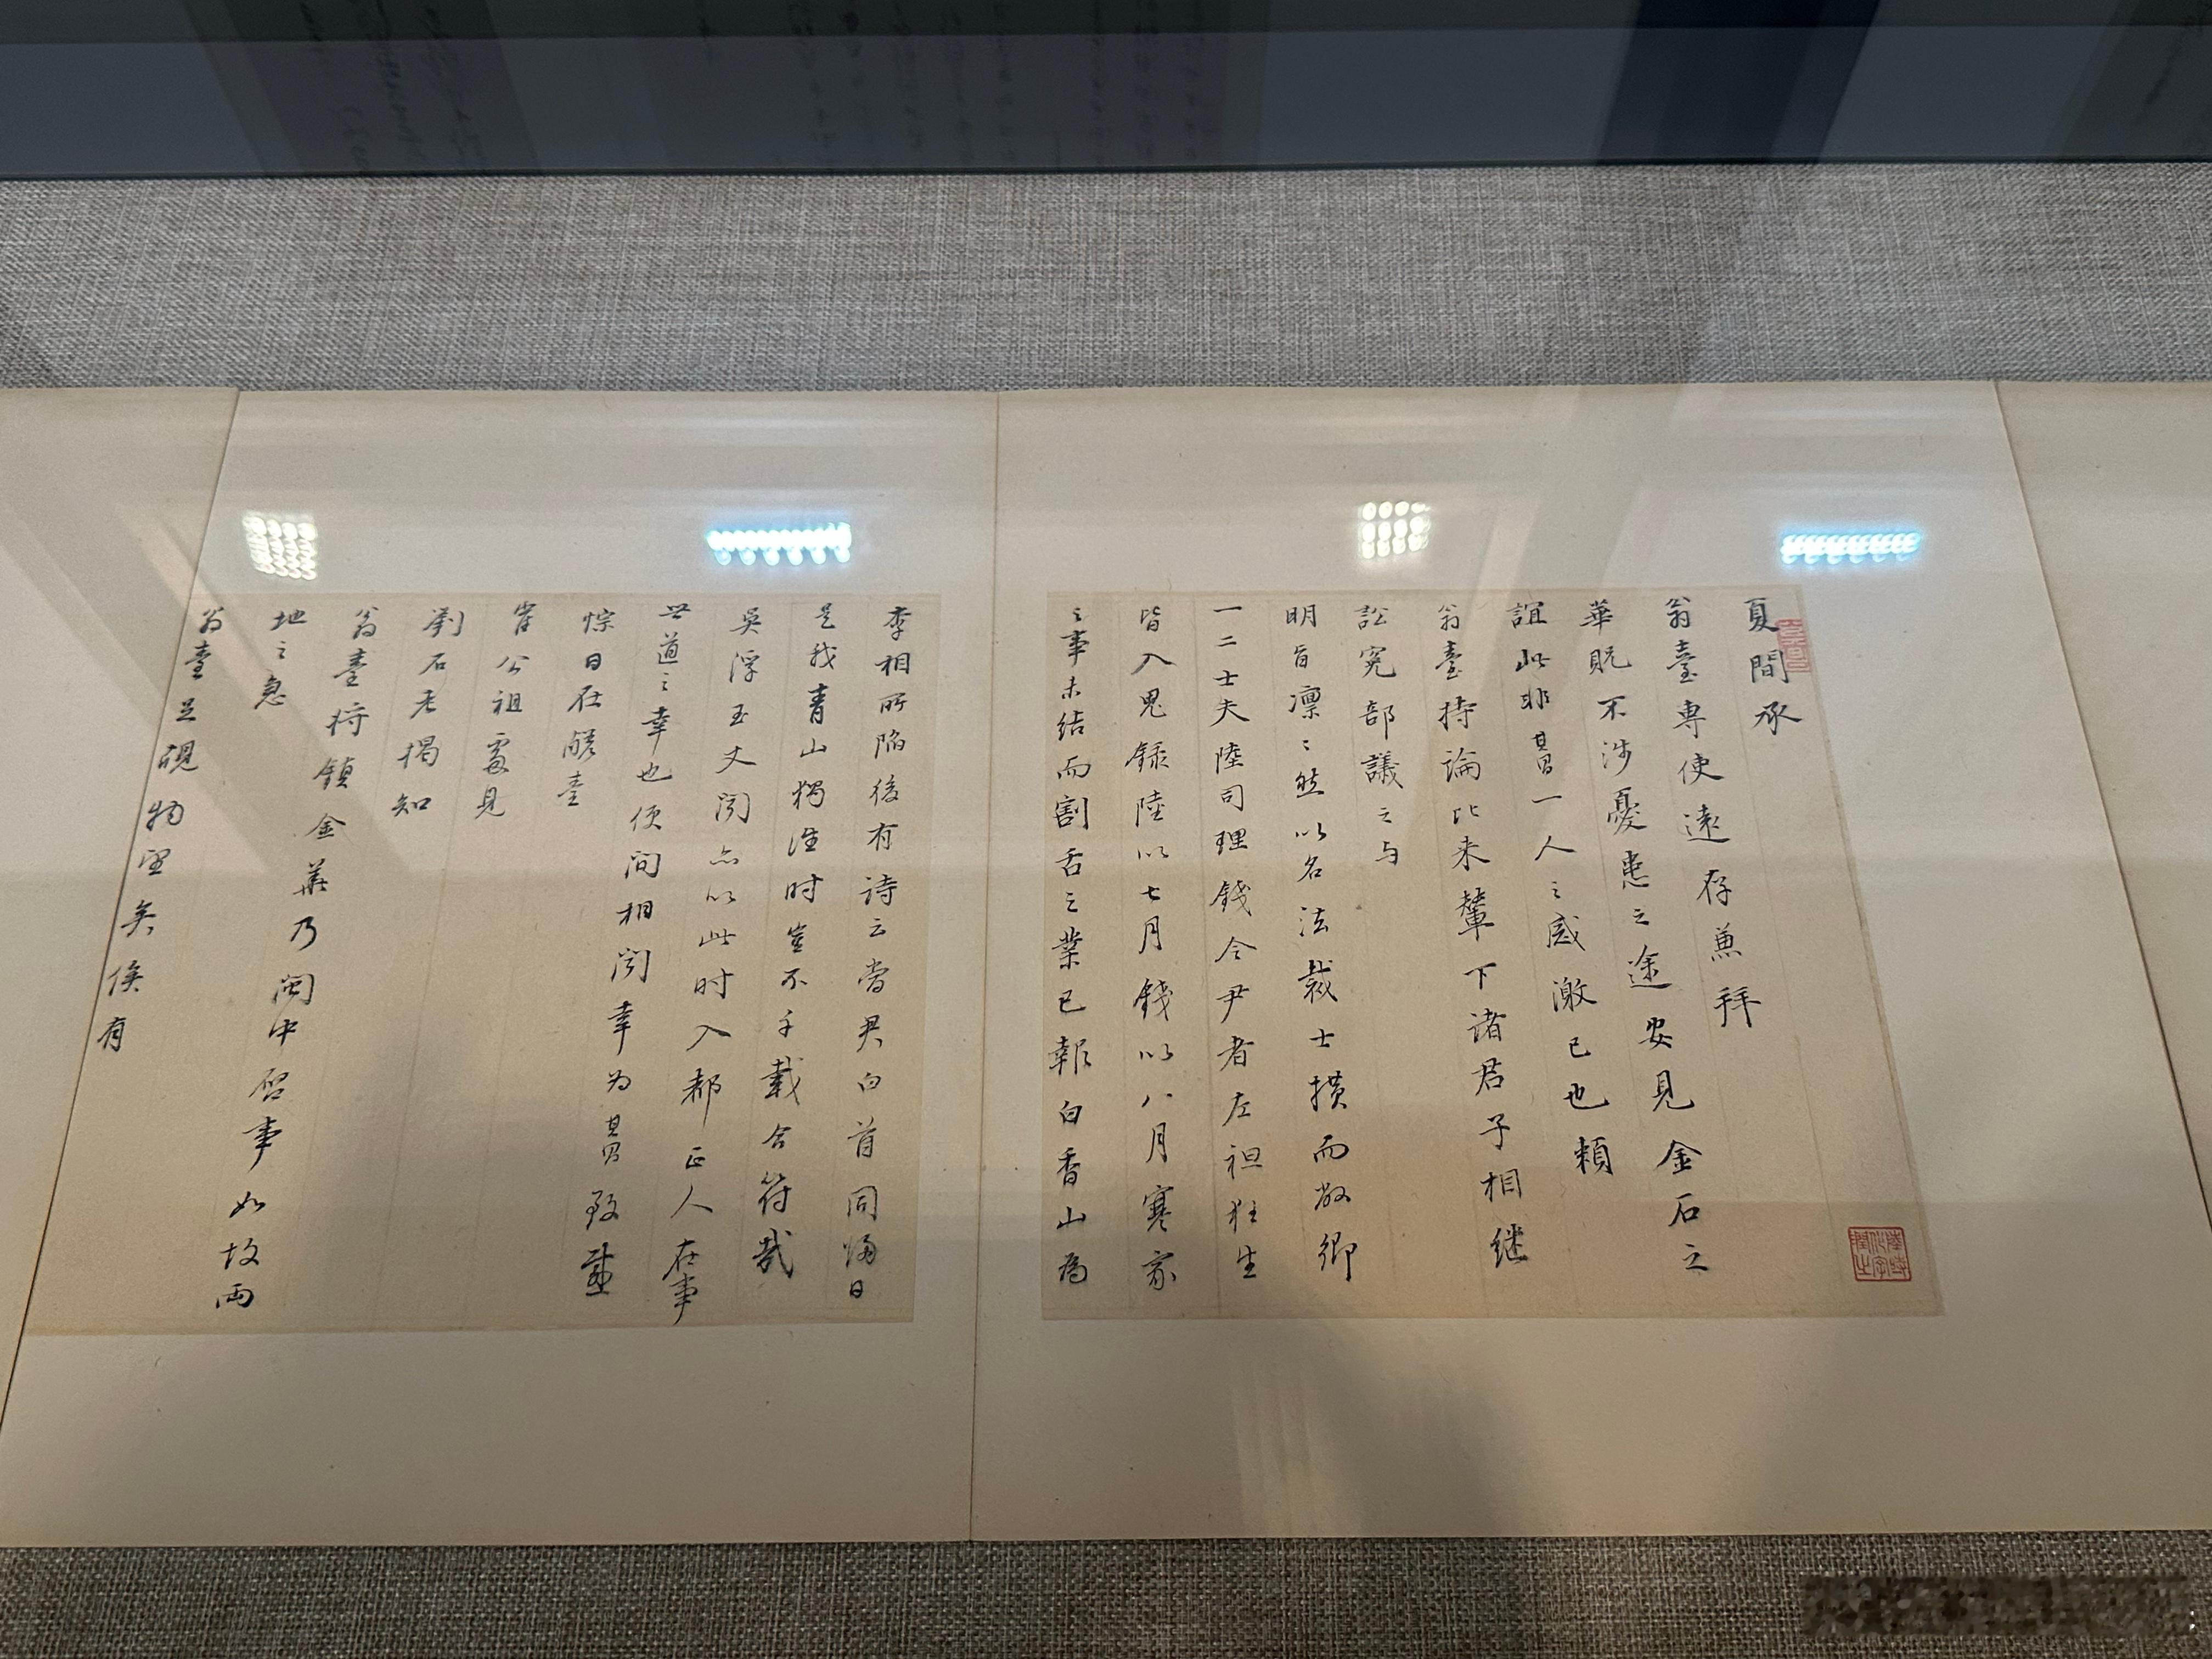 夏間承
翁臺專使遠存兼拜
華貺不涉憂患之途安見金石之
誼此非其昌一人之感激已也賴
翁臺持論比来輦下諸君子相継
訟冤部議之与
明旨凛〻然以名法裁士横而敝鄉
一二士夫陸司理錢令尹者左袒狂生
皆入鬼録陸以七月錢以八月寒家
之事未結而割舌之業已報白香山為
李相所陷後有詩云當君白首同歸日
是我青山獨往時豈不千載合符哉
吳浮玉丈聞亦以此时入都正人在事
世道之幸也便间相聞幸为其昌致
悰日在
公祖處見
劉石老揭知
翁臺将鎮金華乃闽中啓事如故両
地之急
翁臺足硯物望矣俟有
陸時化字潤之